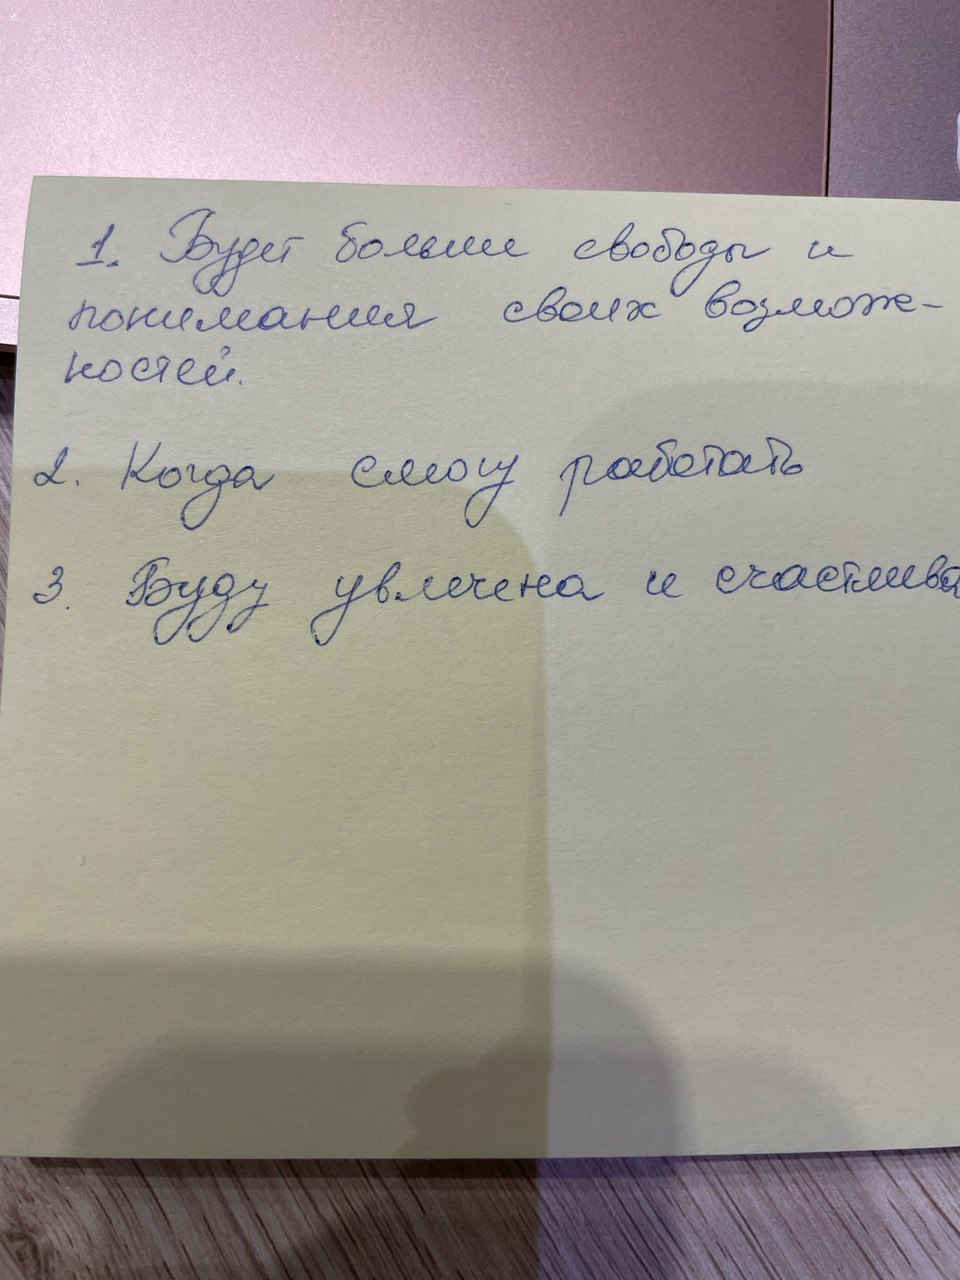 1. Будет больше свободы и
понимания своих возмож-
ностей.
2. Когда смогу работать
3. Буду увлечена и счастлива